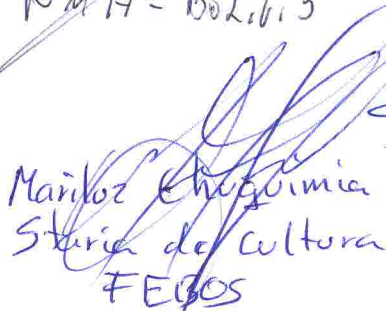 Mariloz Chuquimia
Staria de Cultura
FEBOS